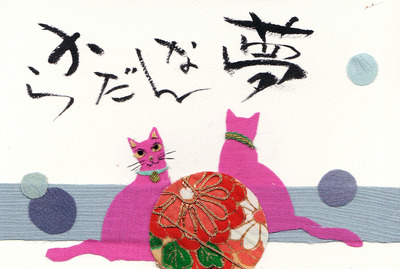 夢
なん
だ
から